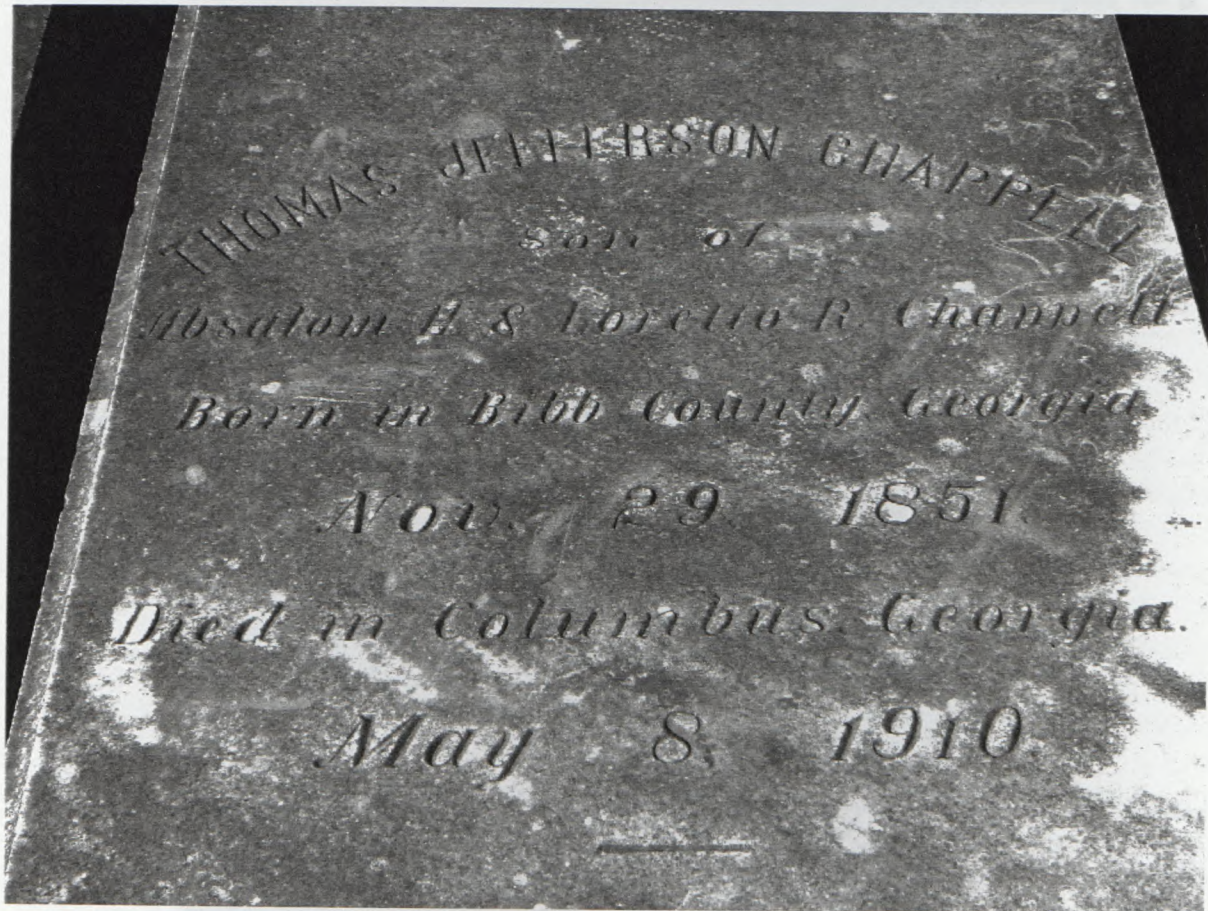 THOMAS JEFFERSON CHAPPELL
Son of
Absalom H. & Loretto R. Chappell.
Born in Bibb County, Georgia.
Nov. 29. 1851.
Died in Columbus, Georgia.
May 8, 1910.